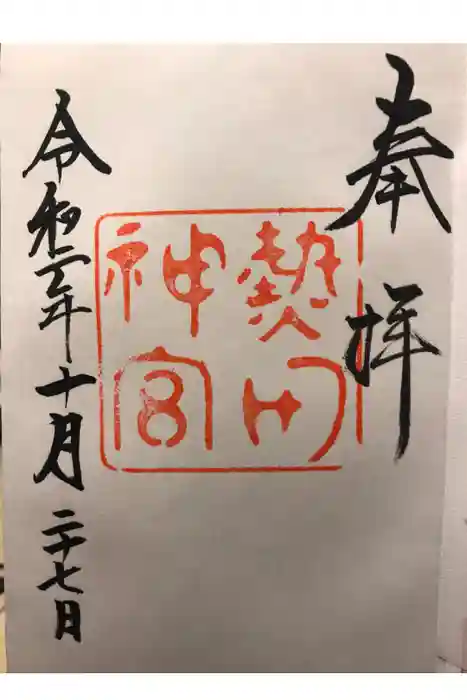 奉拝
熱田
神宮
令和二年十月二十七日